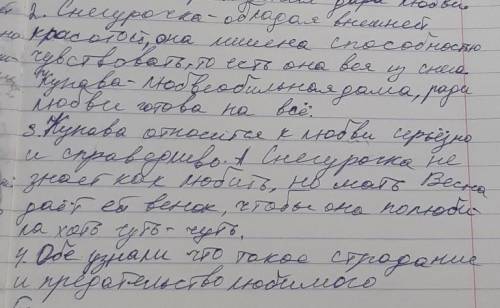 2. Снегурочка - обладая внешней
красотой, она лишена способностью
чувствовать, то есть она вся из снега
Купава - любвеобильная дама, ради
любви готова на всё.
3. Купава относится к любви серьёзно
и справедливо. А Снегурочка не
знает как любить, но мать Весна
даёт ей венок, чтобы она полюби-
ла хоть чуть-чуть.
4. Обе узнали что такое страдание
и предательство любимого